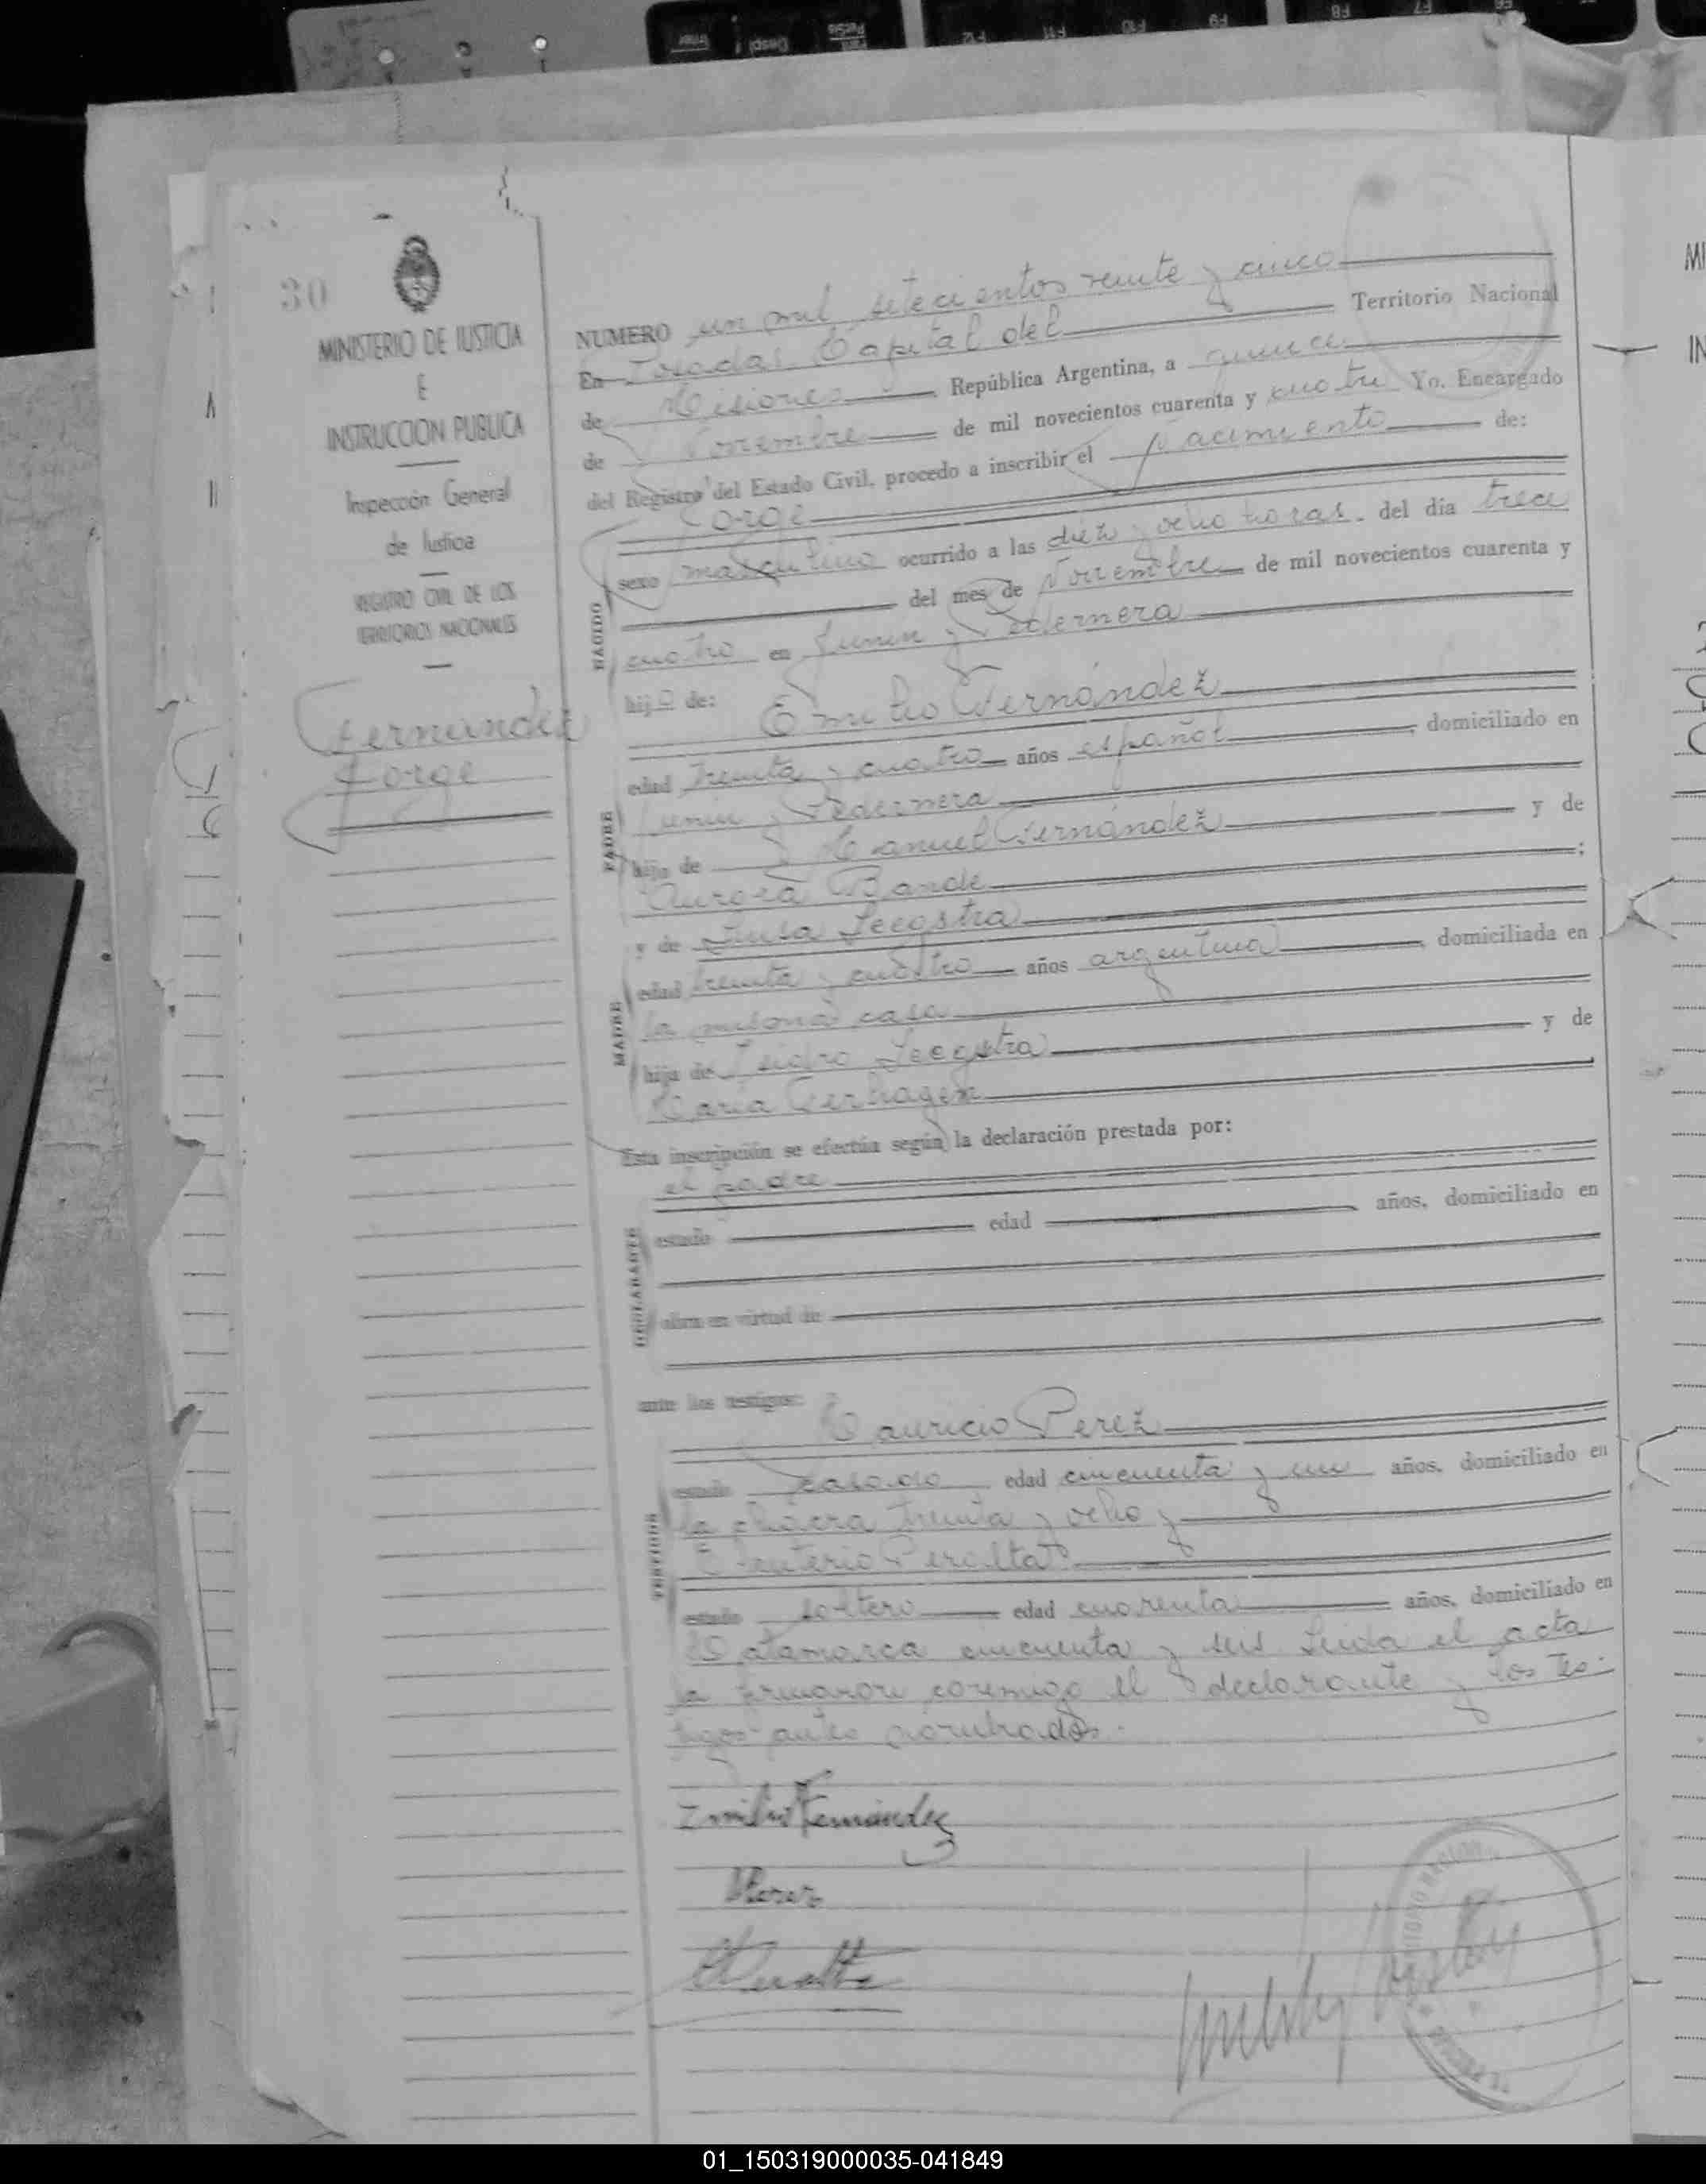 Insert
Despl
Pant
PetSis
F12
F11
F10
F9
F8
F7
F6
30
MINISTERIO DE JUSTICIA
E
INSTRUCCION PUBLICA
Inspección General
de Justicia
REGISTRO CIVIL DE LOS
TERRITORIOS NACIONALES
Fernández
Jorge
NUMERO un mil setecientos veinte y cinco
En Posadas Capital del Territorio Nacional
de Misiones República Argentina, a quince
de Noviembre de mil novecientos cuarenta y cuatro Yo, Encargado
del Registro del Estado Civil, procedo a inscribir el Nacimiento de:
Jorge
sexo masculino ocurrido a las diez y ocho horas del día trece
del mes de Noviembre de mil novecientos cuarenta y
cuatro en Junin y Pedernera
NACIDO
hijo de: Emilio Fernández
edad treinta y cuatro años español, domiciliado en
Junin y Pedernera
PADRE
hijo de Manuel Fernández y de
Aurora Bande;
y de Luisa Leegstra
edad treinta y cuatro años argentina, domiciliada en
la misma casa
MADRE
hija de Isidro Leegstra y de
Maria Verhagen
Esta inscripción se efectúa según la declaración prestada por:
el padre
estado edad años, domiciliado en
DECLARANTE
obra en virtud de
ante los testigos:
Mauricio Perez
estado casado edad cincuenta y un años, domiciliado en
la chacra treinta y ocho y
TESTIGOS
Eleuterio Peralta
estado soltero edad cuarenta años, domiciliado en
Catamarca cincuenta y seis Leida el acta
la firmaron conmigo el declarante y los tes-
tigos antes nombrados.
Emilio Fernández
MPerez
EPeralta
01_150319000035-041849